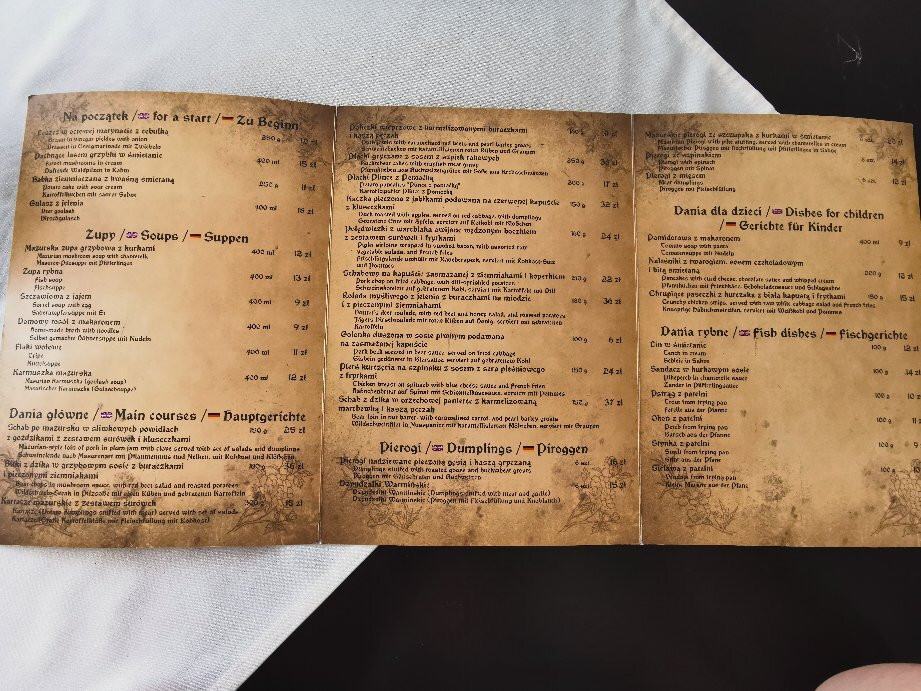 Na początek / for a start / Zu Beginn
w octowej marynacie z cebulką 250 g
Bream in vinegar pickles with onion
Brassen in Essigmarinade mit Zwiebeln
Duchnące lasem grzybki w śmietanie 400 ml 15 zł
Forest mushrooms in cream
Duftende Waldpilze in Rahm
Babka ziemniaczana z kwaśną śmietaną 250 g 11 zł
Potato cake with sour cream
Kartoffelkuchen mit saurer Sahne
Gulasz z jelenia 400 ml 15 zł
Deer goulash
Hirschgulasch
Zupy / Soups / Suppen
Mazurska zupa grzybowa z kurkami 400 ml 12 zł
Masurian mushroom soup with chanterelle
Masuren Pilzsuppe mit Pfifferlingen
Zupa rybna 400 ml 13 zł
Fish soup
Fischsuppe
Szczawiowa z jajem 400 ml 9 zł
Sorrel soup with egg
Sauerampfersuppe mit Ei
Domowy rosół z makaronem 400 ml 9 zł
Home-made broth with noodles
Selbst gemachte Hühnersuppe mit Nudeln
Flaki wołowe 400 ml 11 zł
Tripe
Kuttelsuppe
Karmuszka mazurska 400 ml 12 zł
Masurian Karmuszka (goulash soup)
Masurischer Karmuszka (Gulaschsuppe)
Dania główne / Main courses / Hauptgerichte
Schab po mazursku w śliwkowych powidłach
z goździkami z zestawem surówek i kluseczkami 150 g 25 zł
Masurian-style loin of pork in plum jam with clove served with set of salads and dumplings
Schweinelende nach Masurenart mit Pflaumenmus und Nelken, mit Rohkost und Klößchen
z dzika w grzybowym sosie z buraczkami 100 g 36 zł
i pieczonymi ziemniakami
Boar chops in mushroom sauce, with red beet salad and roasted potatoes
Wildschwein-Steak in Pilzsoße mit roten Rüben und gebratenen Kartoffeln
Kartacze mazurskie z zestawem surówek 300 g 15 zł
Kartacze (Potato dumplings stuffed with meat) served with set of salads
Kartacze (Große Kartoffelklöße mit Fleischfüllung mit Rohkost)
Policzki wieprzowe z karmelizowanymi buraczkami
i kaszą pęczak
Pork cheeks with caramelized red beets and pearl barley groats
mit karamellisierten roten Rüben und Graupen
Plachi gryczane z sosem z szpiek rakowych 350 g
Buckwheat cakes with crayfish meat gravy
Pfannkuchen aus Buchweizengrütze mit Soße aus Krebsschwänzen
Plachi Plince z Poniadłą 300 g 17 zł
Potato pancakes "Plince z poniadłą"
Kartoffelpuffer Plince z Poniedłą
Kaczka pieczona z jabłkami podawana na czerwonej kapuście 150 g 32 zł
z kluseczkami
Duck roasted with apples, served on red cabbage, with dumplings
Gebratene Ente mit Äpfeln, serviert auf Rotkohl mit Klößchen
Polędwiczki z warchlaka owijane wędzonym boczkiem 100 g 24 zł
z zestawem surówek i frytkami
Piglet sirloins wrapped in smoked bacon, with assorted raw
vegetable salads, and French fries
Frischlingslende umhüllt mit Räucherspeck, serviert mit Rohkost-Satz
und Pommes
Schabowy na kapuście zasmażanej z ziemniakami i koperkiem 22 zł
Pork chop on fried cabbage, with dill-sprinkled potatoes
Schweinekotelett auf gebratenem Kohl, serviert mit Kartoffeln mit Dill
Rolada myśliwego z jelenia z buraczkami na miodzie 180 g 36 zł
i z pieczonymi ziemniakami
Hunter's deer roulade, with red beet and honey salad, and roasted potatoes
Jägers Hirschroulade mit roten Rüben auf Honig, serviert mit gebratenen
Kartoffeln
Golonka duszona w sosie piwnym podawana 100 g 6 zł
na zasmażanej kapuście
Pork hock seared in beer sauce, served on fried cabbage
Eisbein gedünstet in Biersauce serviert auf gebratenem Kohl
Pierś kurczęcia na szpinaku z sosem z sera pleśniowego 150 g 24 zł
z frytkami
Chicken breast on spinach with blue cheese sauce and French fries
Hähnchenbrust auf Spinat mit Schimmelkäsesauce, serviert mit Pommes
Schab z dzika w orzechowej panierce z karmelizowaną 150 g 37 zł
marchewką i kaszą pęczak
Boar loin in nut batter, with caramelized carrot, and pearl barley groats
Wildschweinfilet in Nusspanier mit karamellisierten Möhrchen, serviert mit Graupen
Pierogi / Dumplings / Piroggen
Pierogi nadziewane pieczoną gęsią i kaszą gryczaną 6 szt. 16 zł
Dumplings stuffed with roasted goose and buckwheat groats
Piroggen mit Gänsebraten und Buchweizen
Dzyndzałki Warmińskie 6 szt. 15 zł
Dzyndzałki Warmińskie (Dumplings stuffed with meat and garlic)
Dzyndzałki Warmińskie (Piroggen mit Fleischfüllung und Knoblauch)
Mazurskie pierogi ze szczupaka z kurkami w śmietanie 6 szt.
Masurian pierogi with pike stuffing, served with chanterelles in cream
Masurische Piroggen mit Hechtfüllung mit Pfifferlingen in Sahne
Pierogi ze szpinakiem 6 szt. 14 zł
Pierogi with spinach
Piroggen mit Spinat
Pierogi z mięsem 6 szt. 13 zł
Meat dumplings
Piroggen mit Fleischfüllung
Dania dla dzieci / Dishes for children
/ Gerichte für Kinder
Pomidorowa z makaronem 400 ml 9 zł
Tomato soup with pasta
Tomatensuppe mit Nudeln
Naleśniki z twarogiem, sosem czekoladowym
i bitą śmietaną 200 g 13 zł
Pancakes with curd cheese, chocolate sauce and whipped cream
Pfannkuchen mit Frischkäse, Schokoladensauce und Schlagsahne
Chrupiące paseczki z kurczaka z białą kapustą i frytkami 150 g 15 zł
Crunchy chicken strips, served with raw white cabbage salad and French fries
Knusprige Hähnchenstreifen, serviert mit Weißkohl und Pommes
Dania rybne / Fish dishes / Fischgerichte
Lin w śmietanie 100 g 12 zł
Tench in cream
Schleie in Sahne
Sandacz w kurkowym sosie 100 g 14 zł
Pikeperch in chanterelle sauce
Zander in Pfifferlingsoße
Pstrąg z patelni 100 g 10 z
Trout from frying pan
Forelle aus der Pfanne
Okoń z patelni 100 g 11
Perch from frying pan
Barsch aus der Pfanne
Stynka z patelni 100 g 9
Smelt from frying pan
Stint aus der Pfanne
z patelni 100 g 10
Vendace from frying pan
Kleine Maräne aus der Pfanne